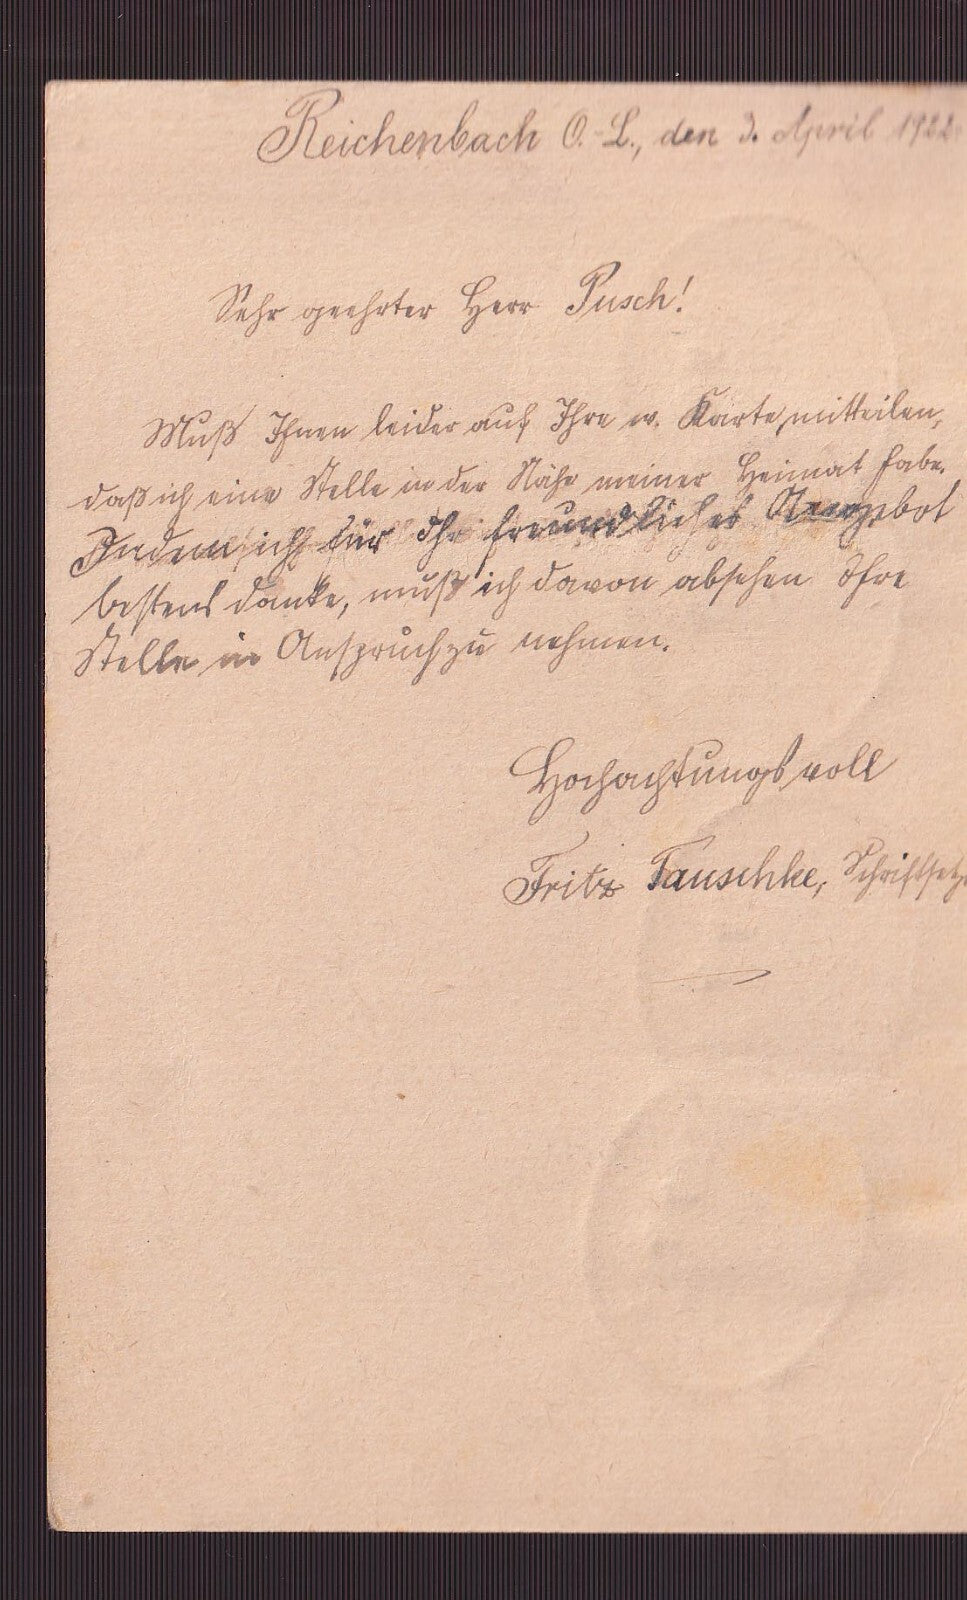 Reichenbach O.-L., den 3. April 1922.
Sehr geehrter Herr Pusch!
Muß Ihnen leider auf Ihre w. Karte mitteilen,
daß ich eine Stelle in der Nähe meiner Heimat habe.
Indem ich für Ihr freundliches
bestens danke, muß ich davon absehen Ihre
Stelle in Anspruch zu nehmen.
Hochachtungsvoll
Fritz Tauschke, Schriftsetze